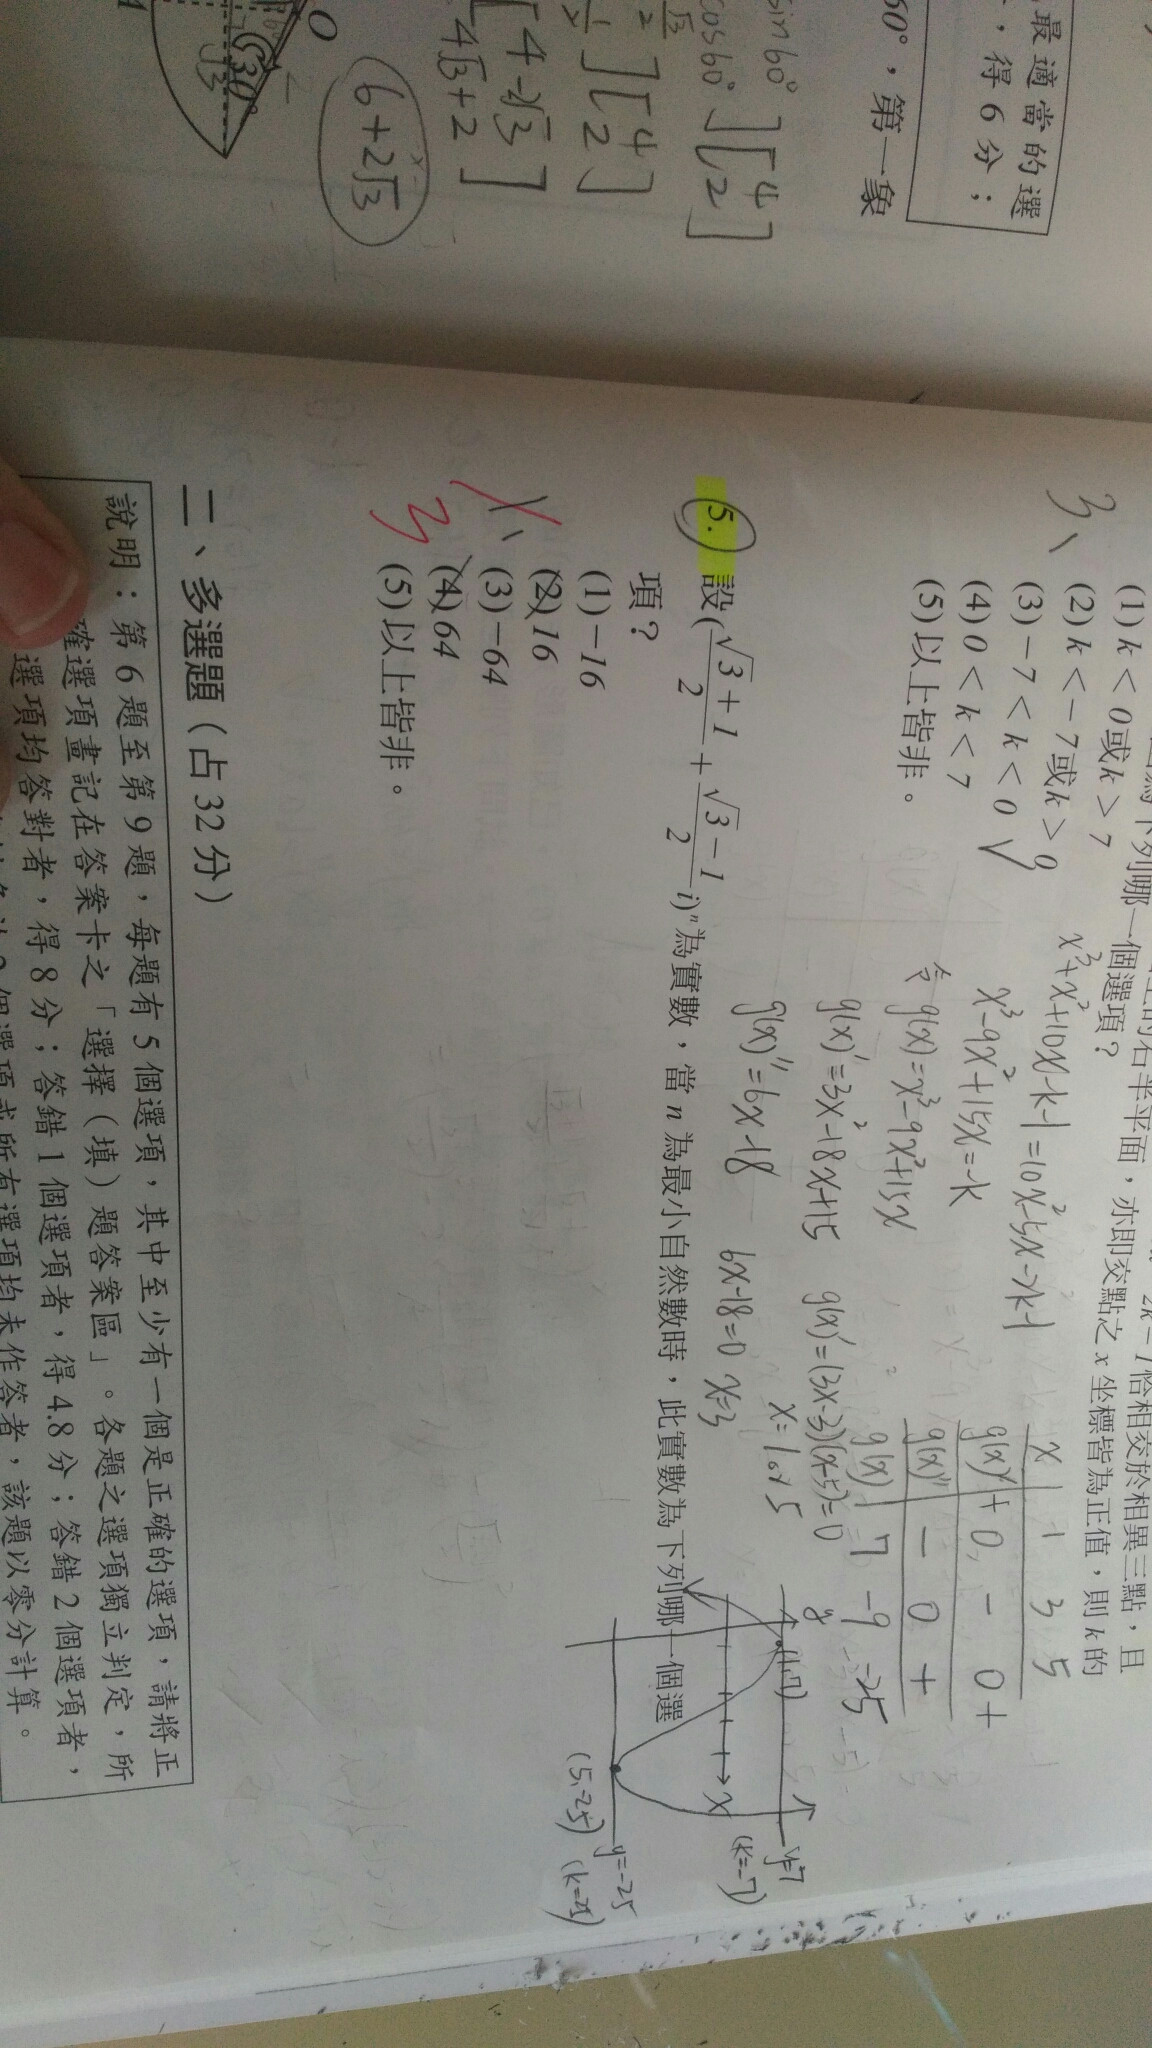 最適當的選
，得6分；
60°，第一象
sin60°
cos60° ] [ 4 2 ]
] [ 4 2 ]
[ 4-2√3
4√3+2 ]
6+2√3
O
30°
√3
2k-1恰相交於相異三點，且
的右半平面，亦即交點之x坐標皆為正值，則k的
為下列哪一個選項？
3、
(1) k<0或k>7
(2) k<-7或k>9
(3) -7<k<0
(4) 0<k<7
(5) 以上皆非。
x³+x²+10x-k-1=10x²-5x-2k-1
x³-9x²+15x=-k
令g(x)=x³-9x²+15x
g(x)'=3x²-18x+15
g(x)'=(3x-3)(x-5)=0
x=1 or 5
g(x)''=6x-18
6x-18=0 x=3
x 1 3 5
g(x)' + 0 - 0 +
g(x)'' - 0 +
g(x) 7 -9 -25
y
x
(1,7)
y=7
(k=-7)
y=-25
(5,-25) (k=25)
5. 設(√3+1/2 + √3-1/2 i)ⁿ為實數，當n為最小自然數時，此實數為下列哪一個選
項？
(1) -16
(2) 16
(3) -64
(4) 64
(5) 以上皆非。
3
二、多選題（占32分）
說明：第6題至第9題，每題有5個選項，其中至少有一個是正確的選項，請將正
確選項畫記在答案卡之「選擇（填）題答案區」。各題之選項獨立判定，所
選項均答對者，得8分；答錯1個選項者，得4.8分；答錯2個選項者，
個選項或所有選項均未作答者，該題以零分計算。